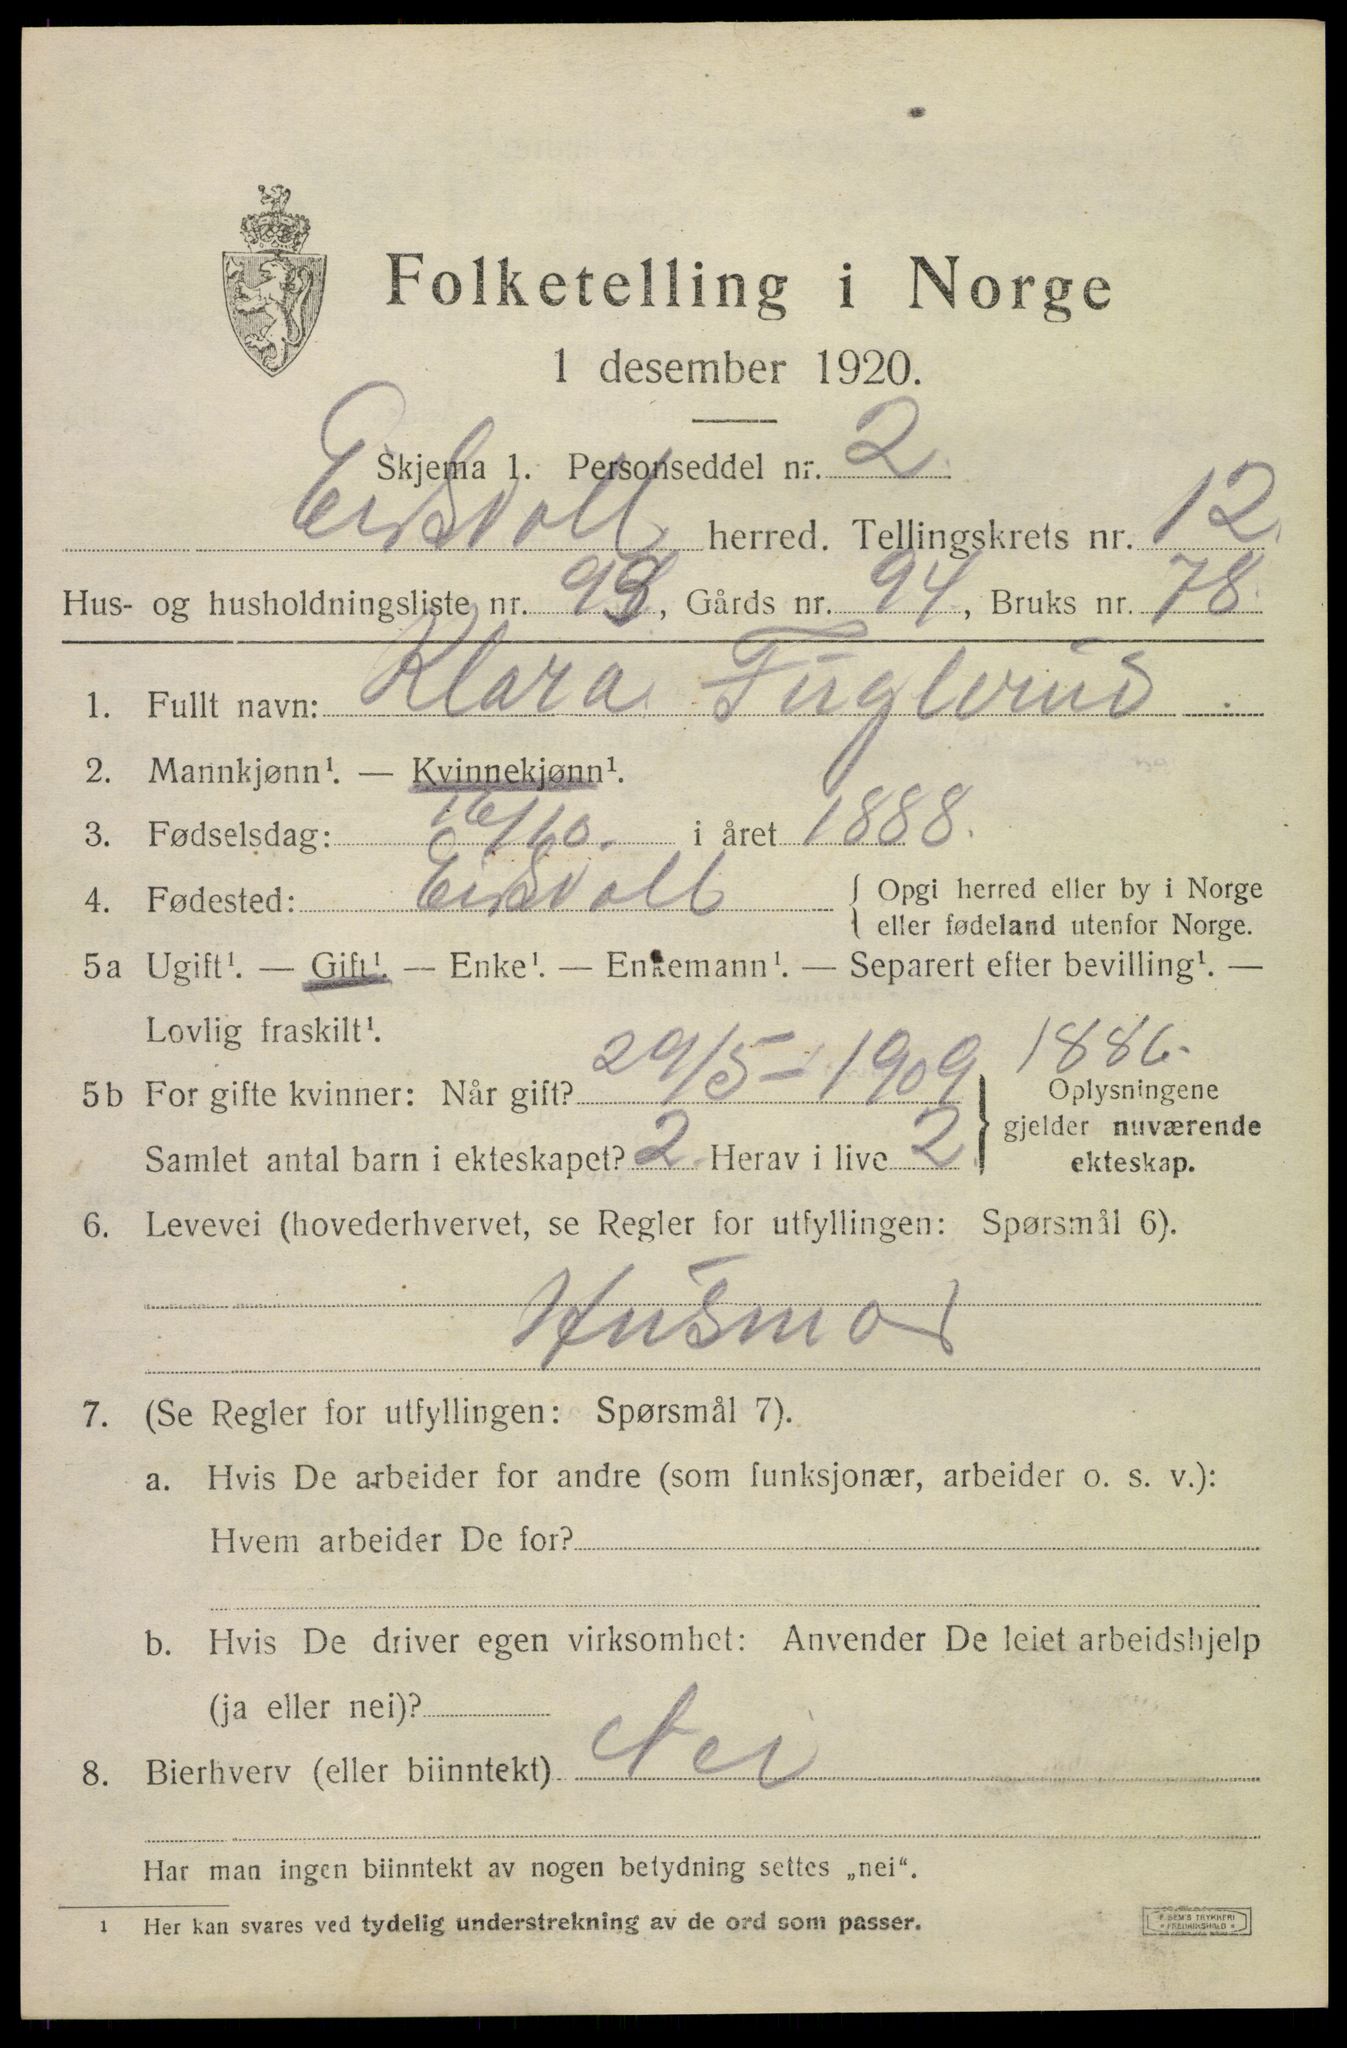 Folketelling i Norge
1 desember 1920.
Skjema 1. Personseddel nr. 2
Eidsvoll herred. Tellingskrets nr. 12
Hus- og husholdningsliste nr. 93, Gårds nr. 94, Bruks nr. 78
1. Fullt navn: Klara Fuglerud
2. Mannkjønn¹. — Kvinnekjønn¹.
3. Fødselsdag: 16/10. i året 1888.
4. Fødested: Eidsvoll { Opgi herred eller by i Norge
eller fødeland utenfor Norge.
5a Ugift¹. — Gift¹. — Enke¹. — Enkemann¹. — Separert efter bevilling¹. —
Lovlig fraskilt¹.
1886.
5b For gifte kvinner: Når gift? 29/5 - 1909 } Oplysningene
gjelder nuværende
Samlet antal barn i ekteskapet? 2 Herav i live 2 ekteskap.
6. Levevei (hovederhvervet, se Regler for utfyllingen: Spørsmål 6).
Husmor
7. (Se Regler for utfyllingen: Spørsmål 7).
a. Hvis De arbeider for andre (som funksjonær, arbeider o. s. v.):
Hvem arbeider De for?
b. Hvis De driver egen virksomhet: Anvender De leiet arbeidshjelp
(ja eller nei)?
8. Bierhverv (eller biinntekt) Nei
Har man ingen biinntekt av nogen betydning settes „nei“.
¹ Her kan svares ved tydelig understrekning av de ord som passer.
SEM'S TRYKKERI
FREDRIKSHALD